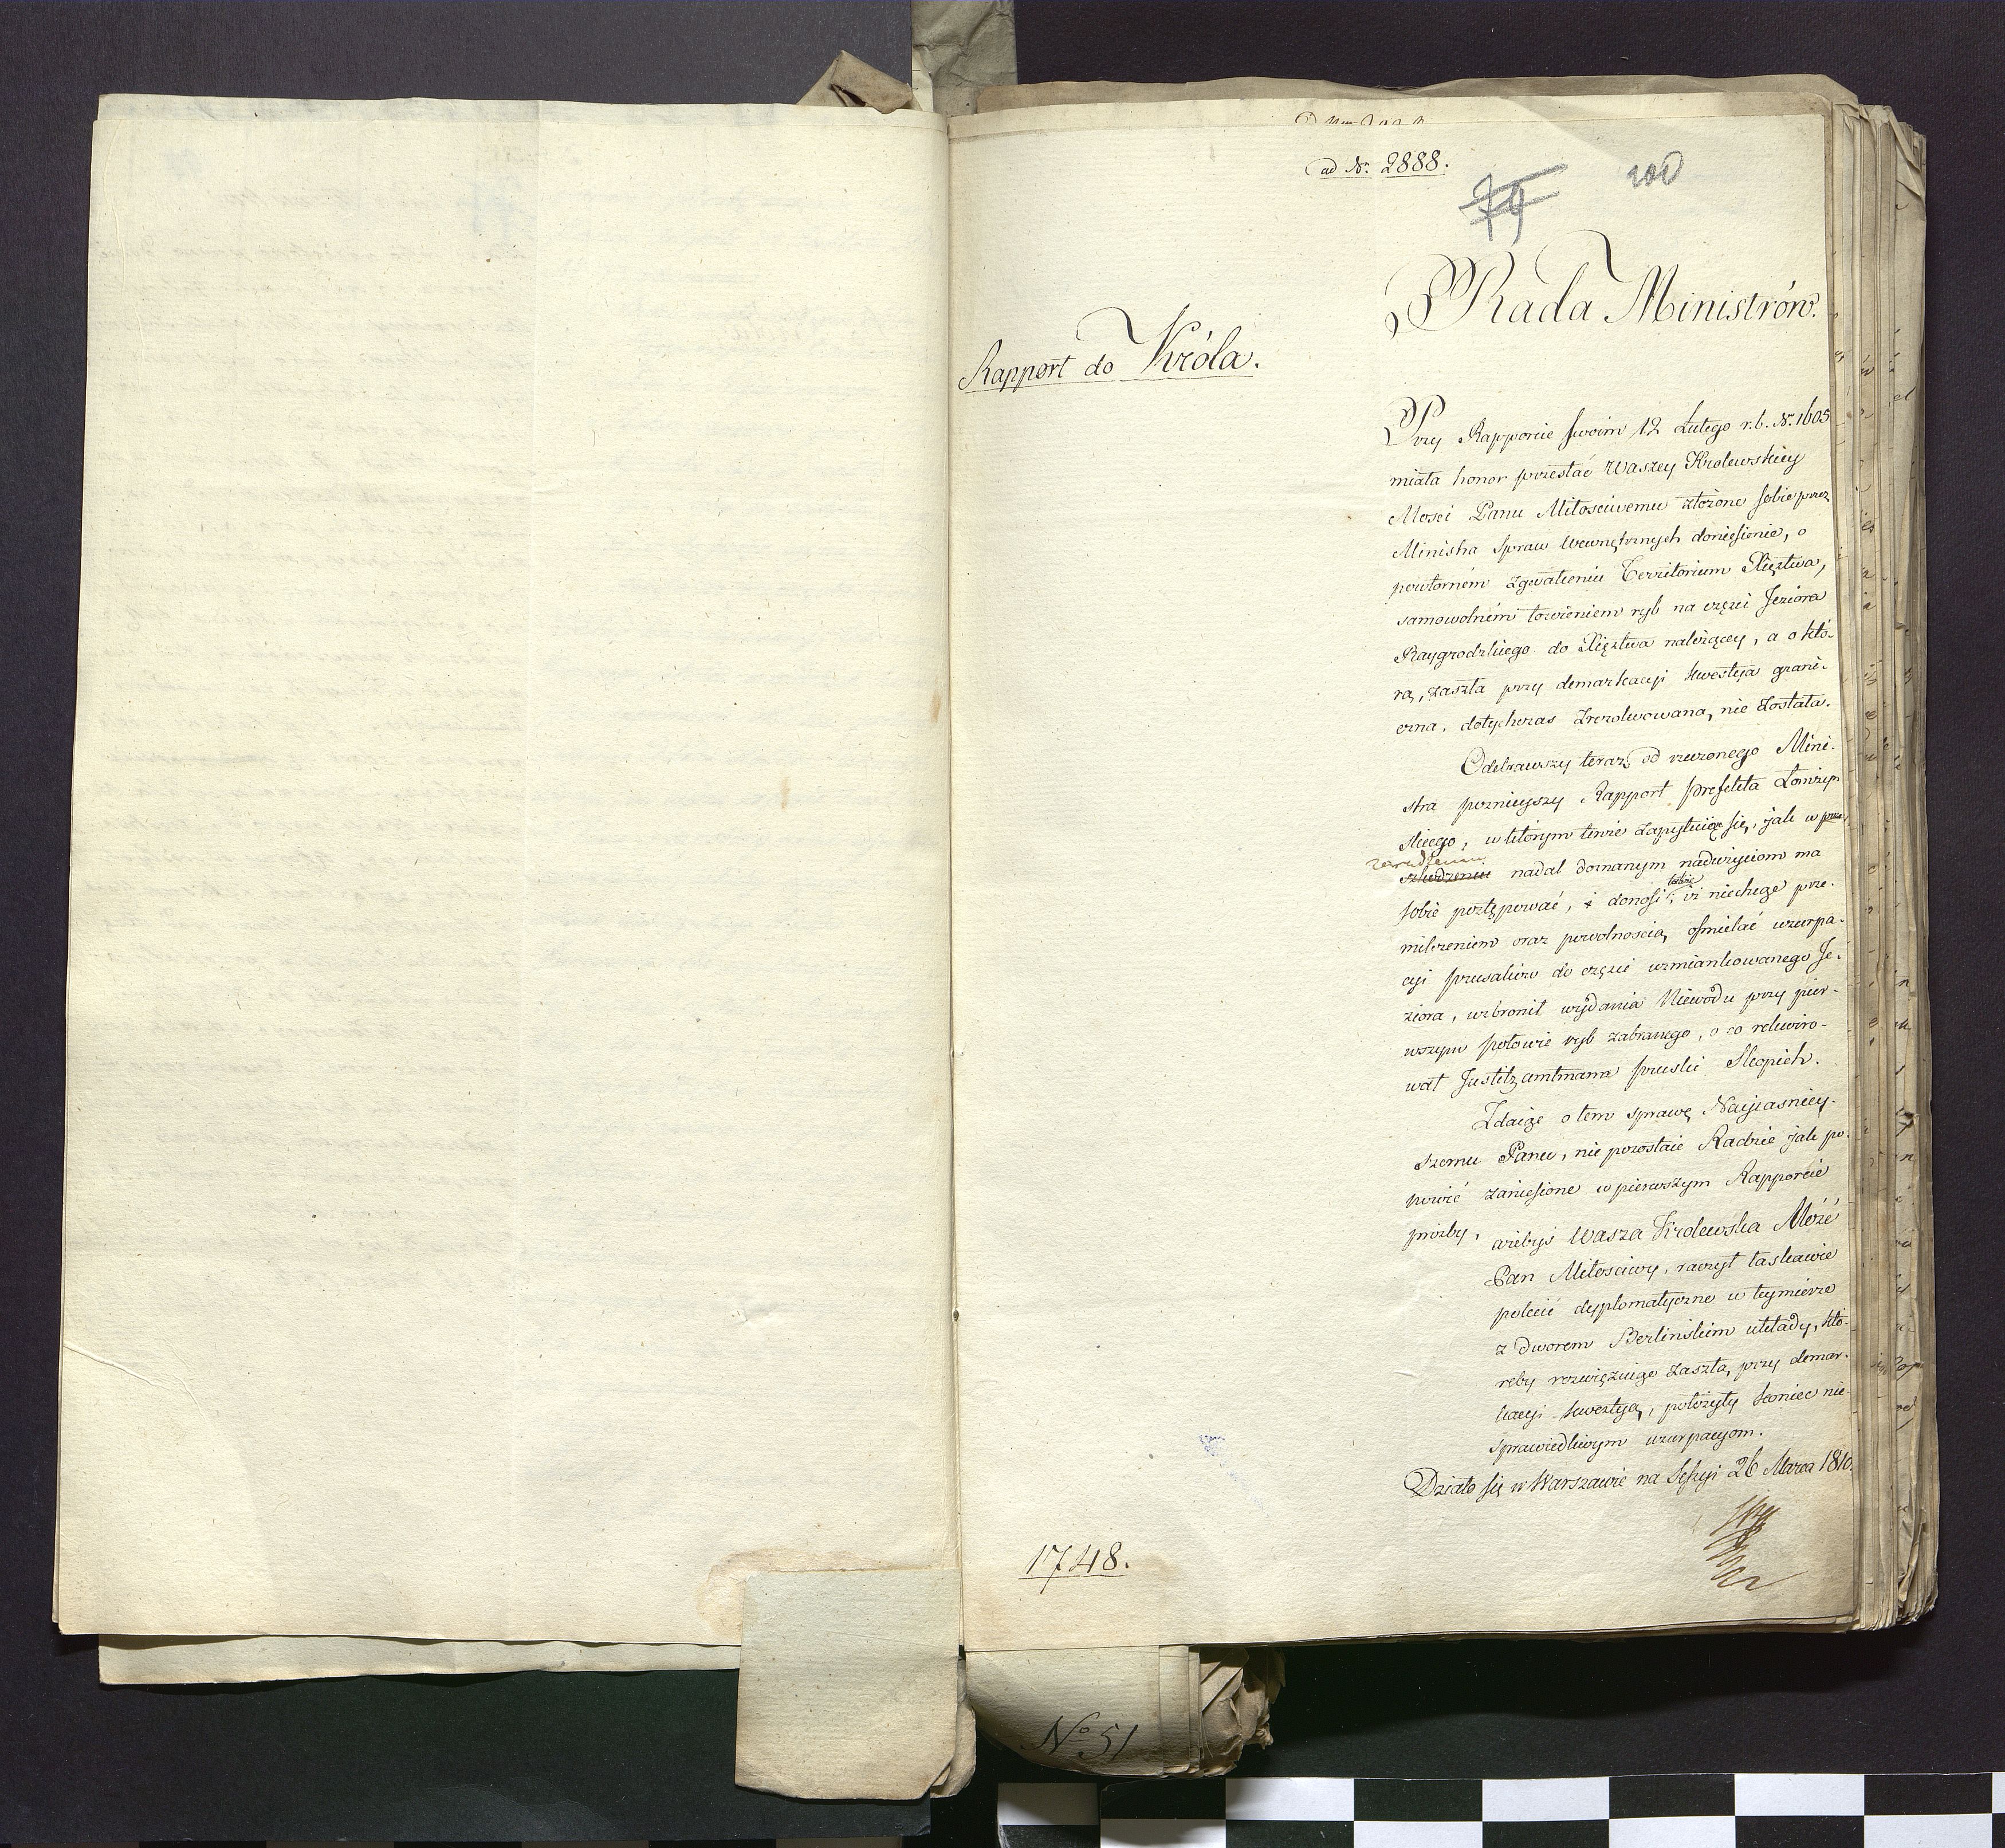 ad Nr. 2888.
79
200
Rada Ministrów.
Rapport do Króla.
Przy Rapporcie swoim 12 Lutego r.b. Nr. 1605
miała honor przesłać Waszey Krolewskiey
Mosci Panu Miłosciwemu złożone sobie przez
Ministra Spraw Wewnętrznych doniesienie, o
powtorném zgwałceniu Territorium Xięztwa,
samowolném łowieniem ryb na części Jeziora
Raygrodzkiego do Xięztwa należącey, a o któ-
rą, zaszła przy demarkacyi kwestya grani-
czna, dotychczas zrezolwowana, nie została.
Odebrawszy teraz od rzeczonego Mini-
stra poznieyszy Rapport Prefekta Łomżyń
skiego, w którym tenże zapytuiąc się, jak w
zaradzeniu
nadal doznanym nadużyciom ma
sobie postępować, i donosi także, iż niechcąc prze-
milczeniem oraz powolnoscią, osmielać uzurpa-
cyi Prusaków do części wzmiankowanego Je-
ziora, wzbronił wydania Niewodu przy pier-
wszym połowie ryb zabranego, o co rekwiro-
wał Justitzamtmann pruski Skopich.
Zdaiąc o tem sprawę Nayjasniey-
szemu Panu, nie pozostaie Radzie jak po-
nowić zaniesione w pierwszym Rapporcie
prozby, ażebyś Wasza Krolewska Mość
Pan Miłosciwy, raczył łaskawie
polecić dyplomatyczne w teymierze
z dworem Berlinskim układy, któ-
reby rozwięzuiąc zaszłą, przy demar-
kacyi kwestyą, położyły koniec nie-
sprawiedliwym uzurpacyom.
Działo się w Warszawie na Sessyi 26 Marca 1810.
1748.
No 51